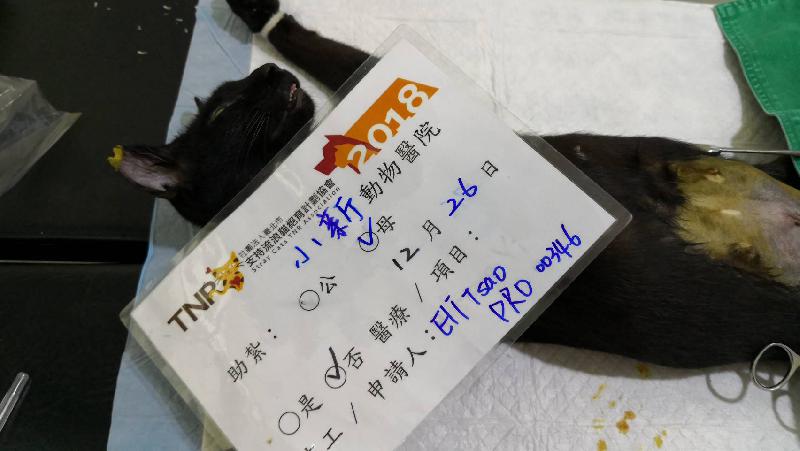 2018
TNR
社團法人臺北市
支持流浪貓絕育計劃協會
Stray Cats TNR Association
小新動物醫院
助紮：○公 ✓母 12月26日
○是 ✓否 醫療/項目：
工/申請人：Eli Tsao
PRO 00346